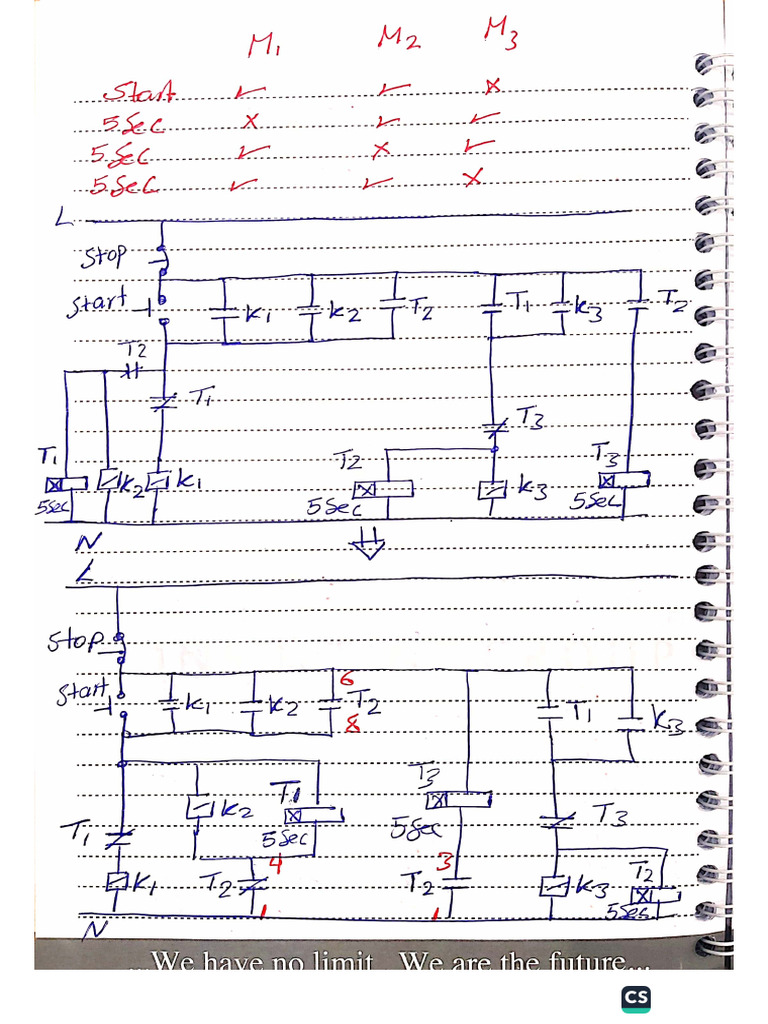 M1 M2 M3
Start ✓ ✓ ×
5Sec × ✓ ✓
5Sec ✓ × ✓
5Sec ✓ ✓ ×
L
Stop
Start K1 K2 T2 T1 K3 T2
T2
T1
T3
T1 K2 K1 T2 K3 T3
5Sec 5Sec 5Sec
N
L
Stop
Start K1 K2 6 T2 8 T1 K3
T1 K2 T1 T3 T3
5Sec 5Sec
K1 T2 4 1 T2 3 1 K3 T2
5Sec
N
...We have no limit We are the future...
CS